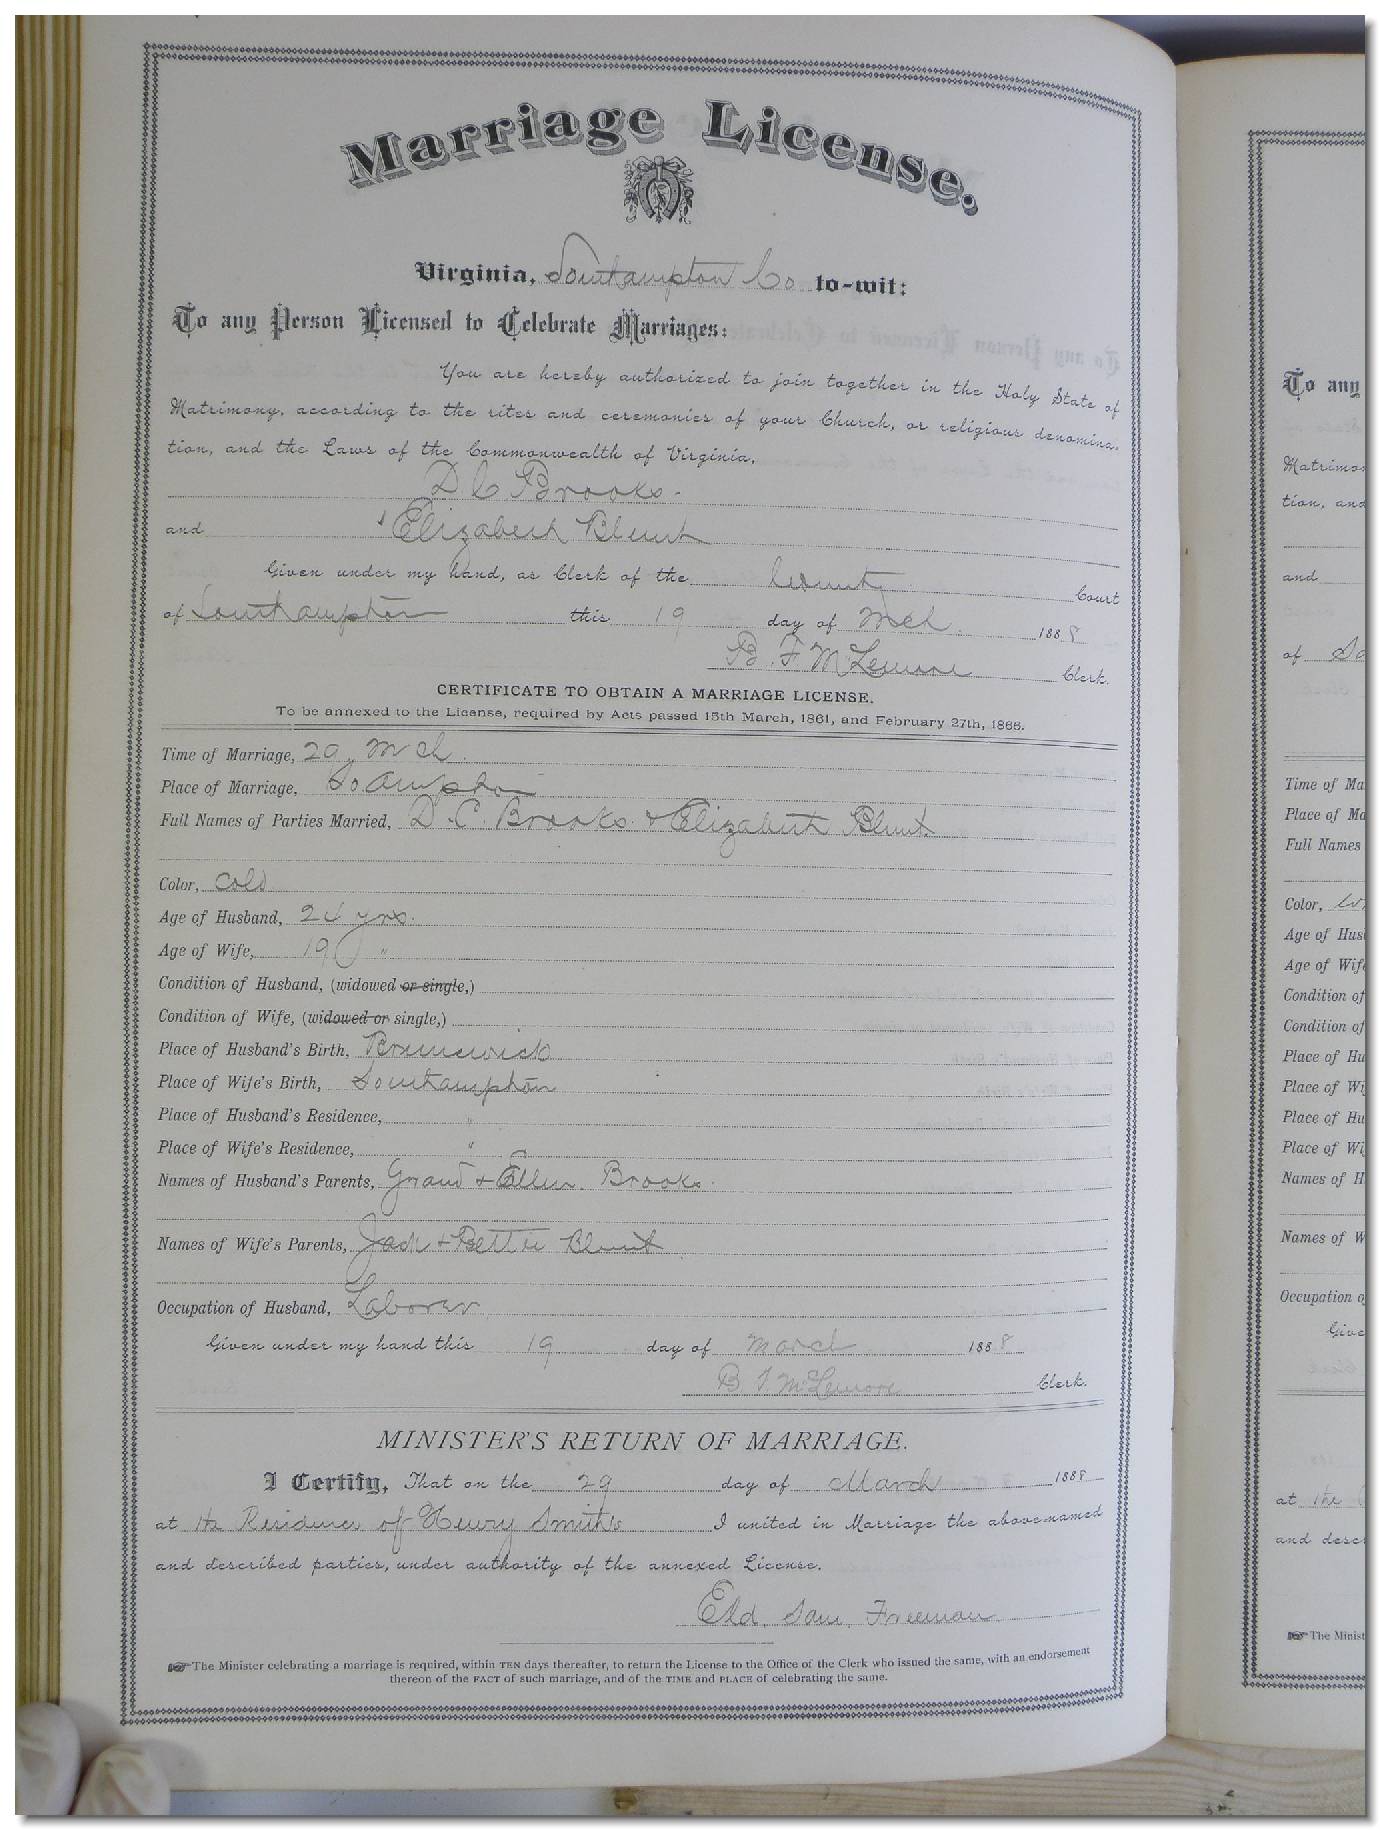 Marriage License.
Virginia, Southampton Co to-wit:
To any Person Licensed to Celebrate Marriages:
You are hereby authorized to join together in the Holy State of
Matrimony, according to the rites and ceremonies of your Church, or religious denomina-
tion, and the Laws of the Commonwealth of Virginia,
D C Brooks
and Elizabeth Blunt
Given under my hand, as Clerk of the County Court
of Southampton this 19 day of Mch 1888
B. F. McLemore Clerk.
CERTIFICATE TO OBTAIN A MARRIAGE LICENSE.
To be annexed to the License, required by Acts passed 15th March, 1861, and February 27th, 1866.
Time of Marriage, 20 Mch
Place of Marriage, So ampton
Full Names of Parties Married, D. C. Brooks & Elizabeth Blunt
Color, Cold
Age of Husband, 24 yrs.
Age of Wife, 19 "
Condition of Husband, (widowed or single,)
Condition of Wife, (widowed or single,)
Place of Husband's Birth, Brunswick
Place of Wife's Birth, Southampton
Place of Husband's Residence, "
Place of Wife's Residence, "
Names of Husband's Parents, & Ellen Brooks
Names of Wife's Parents, Jack & Bettie Blunt
Occupation of Husband, Laborer
Given under my hand this 19 day of March 1888
B F McLemore Clerk.
MINISTER'S RETURN OF MARRIAGE.
I Certify, That on the 29 day of March 1888
at the Residence of Henry Smith's I united in Marriage the above-named
and described parties, under authority of the annexed License.
Eld. Sam. Freeman
☞ The Minister celebrating a marriage is required, within TEN days thereafter, to return the License to the Office of the Clerk who issued the same, with an endorsement
thereon of the FACT of such marriage, and of the TIME and PLACE of celebrating the same.
To any
Matrimo
tion, and
and
of So
Time of Ma
Place of Ma
Full Names
Color,
Age of Hus
Age of Wife
Condition of
Condition of
Place of Hu
Place of Wi
Place of Hu
Place of Wi
Names of H
Names of W
Occupation o
Give
at the
and desc
☞ The Minist